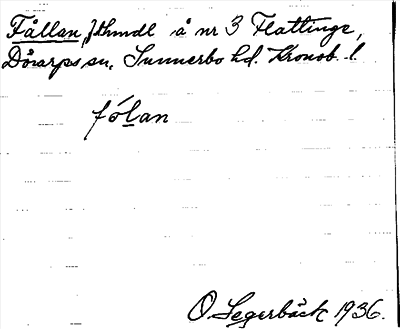 Fållan, f. hmdl å nr 3 Flattinge,
Dörarps sn. Sunnerbo hd. Kronob. l.
fólan
O. Segerbäck 1936.